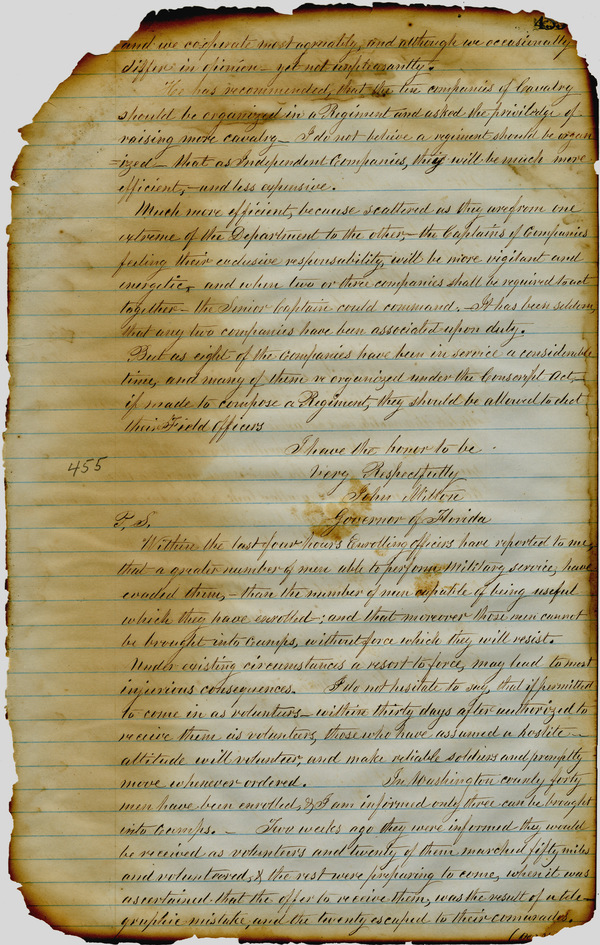 455
and we cooperate most agreeably, and although we occasionally
differ in opinion - yet not unpleasantly.
He has recommended, that the ten companies of Cavalry
should be organized in a Regiment and asked the priviledge of
raising more cavalry - I do not belive a regiment should be organ
=ized - that as Independent Companies, they will be much more
efficient, - and less expensive.
Much more efficient, because scattered as they are from one
extreme of the Department to the other, - the Captains of Companies
feeling their exclusive responsability, will be more vigilant and
energetic, and when two or three companies shall be required to act
together - the Senior Captain could command. - It has been seldom,
that any two companies have been associated upon duty.
But as eight of the Companies have been in service a considerable
time, and many of them reorganized under the Conscript Act, -
if made to compose a Regiment, they should be allowed to elect
their Field Officers
I have the honor to be
Very Respectfully
John Milton
Governor of Florida
455
P. S.
Within the last four hours Enrolling Officers have reported to me,
that a greater number of men able to perform Military service, have
evaded them, - than the number of men capable of being useful
which they have enrolled -; and that moreover those men cannot
be brought into Camps, without force which they will resist.
Under existing circumstances a resort to force, may lead to most
injurious consequences. I do not hesitate to say, that if permitted
to come in as volunteers - within thirty days after authorized to
receive them as volunteers, those who have assumed a hostile -
attitude will volunteer, and make reliable soldiers and promptly
move whenever ordered. In Washington county forty
men have been enrolled, & I am informed only three can be brought
into Camps. - Two weeks ago they were informed they would
be received as volunteers and twenty of them marched fifty miles
and volunteered, & the rest were preparing to come, when it was
ascertained that the offer to receive them, was the result of a tele-
graphic mistake, and the twenty escaped to their comarades.